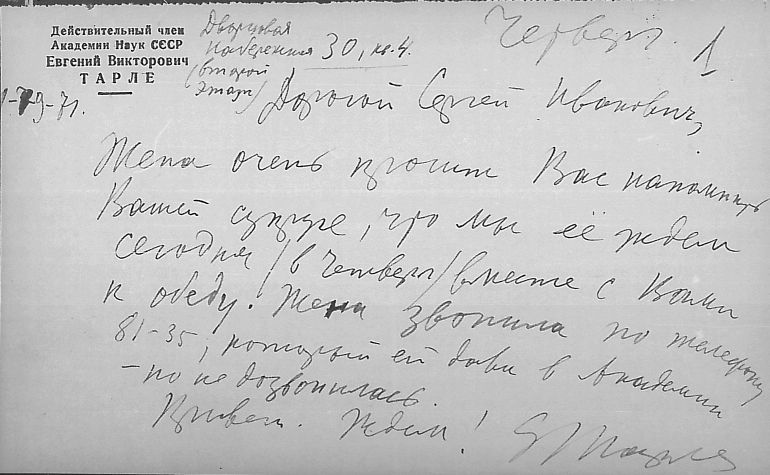 Действительный член
Академии Наук СССР
Евгений Викторович
ТАРЛЕ
Дворцовая
Набережная 30, кв. 4.
(второй
этаж)
Четверг. 1
1-79-71.
Дорогой Сергей Иванович,
Жена очень просит Вас напомнить
Вашей супруге, что мы её ждем
сегодня /в четверг/ вместе с Вами
к обеду. Жена звонила по телефону
81-35, который ей дали в Академии
– но не дозвонилась.
Привет. Ждем! Е Тарле